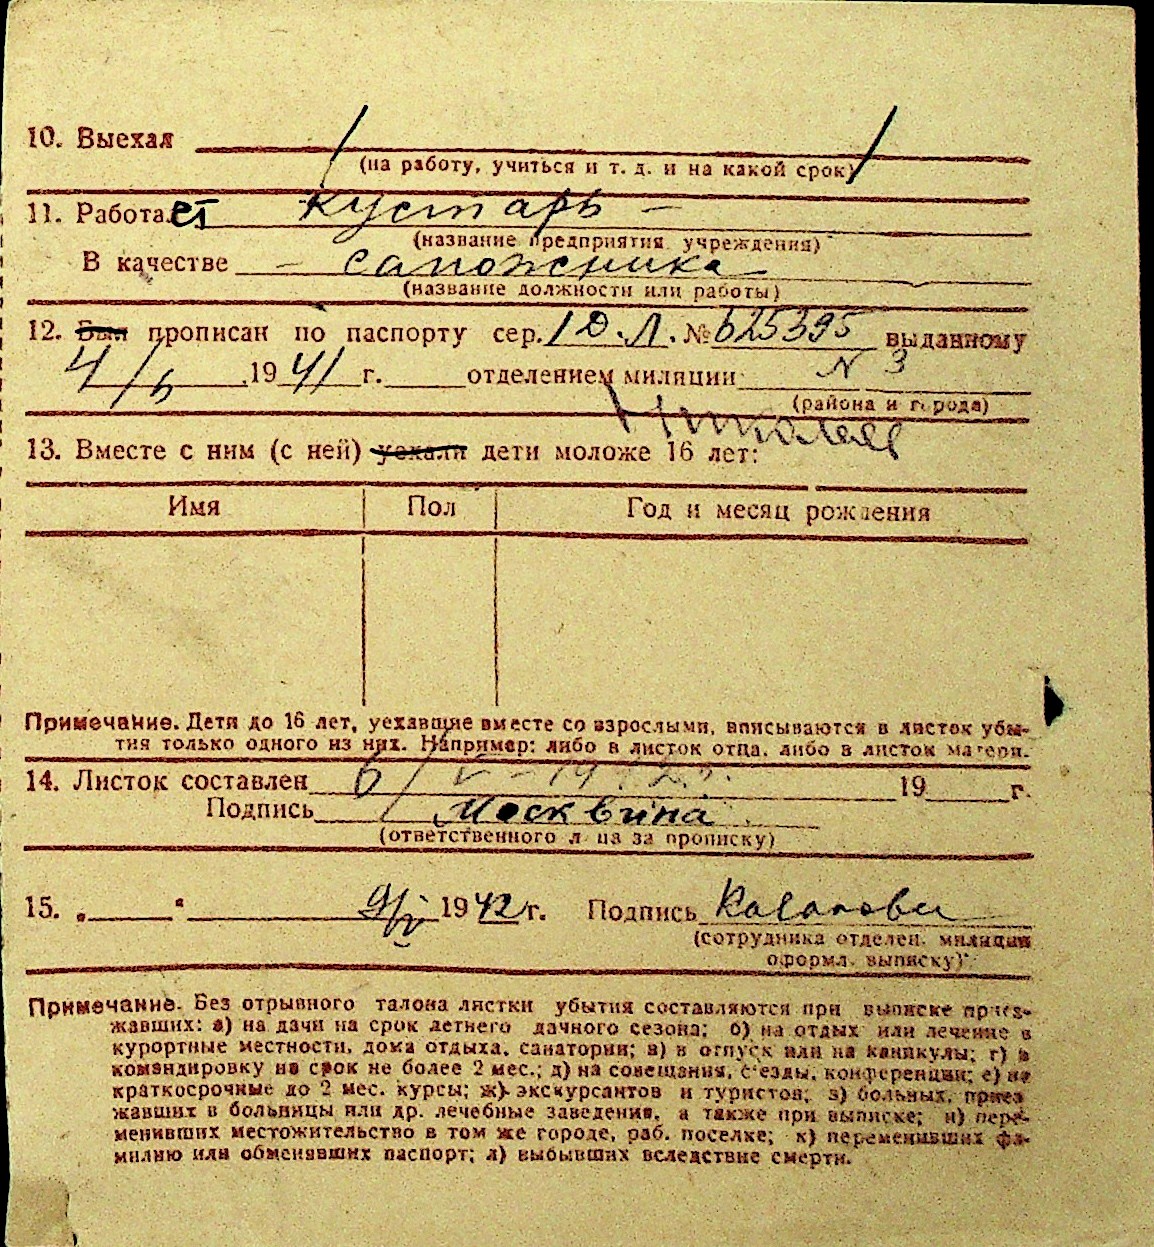 10. Выехал
(на работу, учиться и т. д. и на какой срок)
11. Работает кустарь –
(название предприятия учреждения)
В качестве – сапожника
(название должности или работы)
12. Был прописан по паспорту сер. 1 Д.Л. № 625395 выданному
4/6 1941 г. отделением милиции N 3
(района и города)
13. Вместе с ним (с ней) уехали дети моложе 16 лет:
Имя Пол Год и месяц рождения
Примечание. Дети до 16 лет, уехавшие вместе со взрослыми, вписываются в листок убы-
тия только одного из них. Например: либо в листок отца, либо в листок матери.
14. Листок составлен 6/V – 1942 19 г.
Подпись Москвина
(ответственного лица за прописку)
15. „ “ 9/V 1942 г. Подпись
(сотрудника отделен. милиции
оформл. выписку)
Примечание. Без отрывного талона листки убытия составляются при выписке приез-
жавших: а) на дачи на срок летнего дачного сезона; б) на отдых или лечение в
курортные местности, дома отдыха, санатории; в) в отпуск или на каникулы; г) в
командировку на срок не более 2 мес.; д) на совещания, с'езды, конференции; е) на
краткосрочные до 2 мес. курсы; ж) экскурсантов и туристов; з) больных, приез
жавших в больницы или др. лечебные заведения, а также при выписке; и) пере-
менивших местожительство в том же городе, раб. поселке; к) переменивших фа-
милию или обменявших паспорт; л) выбывших вследствие смерти.